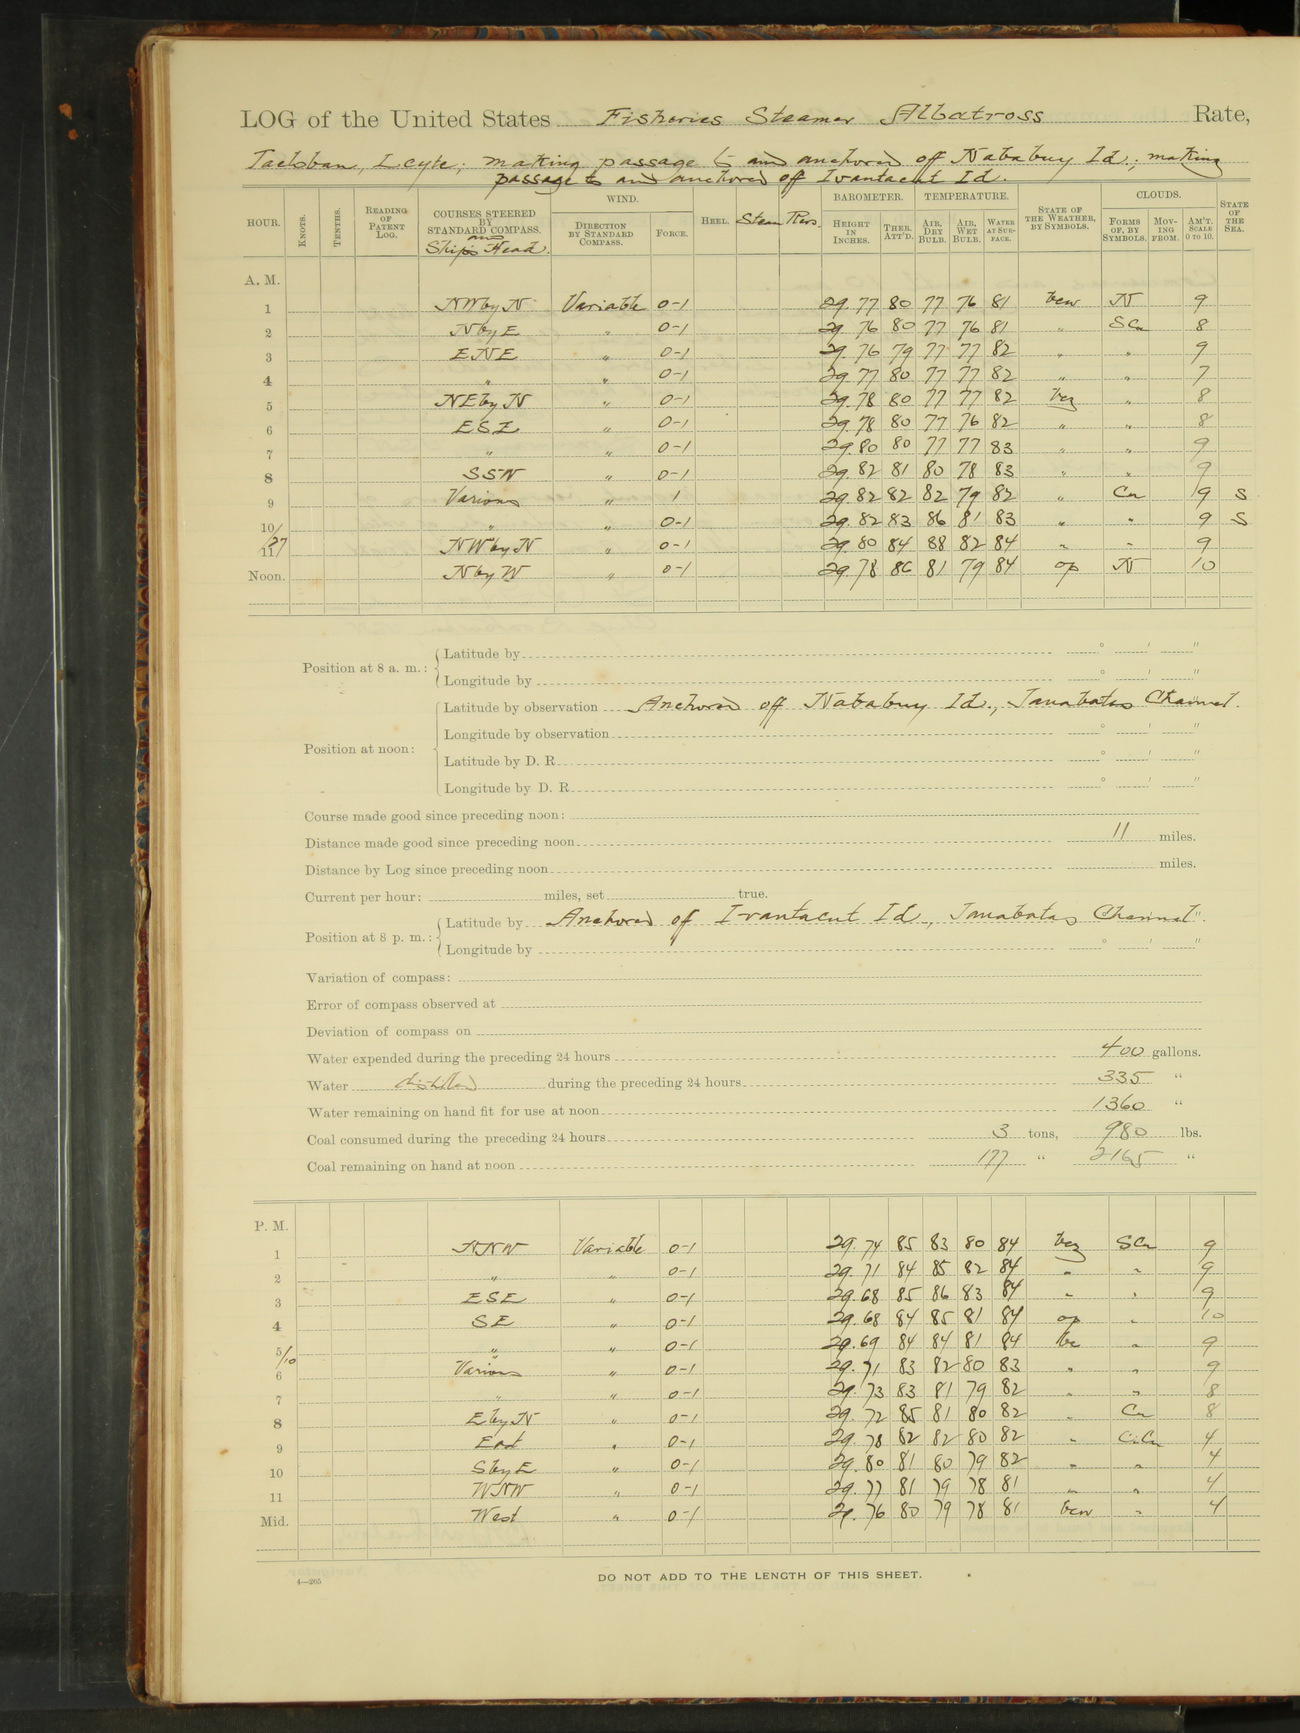 LOG of the United States Fisheries Steamer Albatross Rate,
Tacloban, Leyte; making passage to and anchored off Nababuy Id.; making
passage to and anchored off Ivantacut Id.
HOUR. KNOTS. TENTHS. READING OF PATENT LOG. COURSES STEERED BY STANDARD COMPASS. and Ship's Head. WIND. DIRECTION BY STANDARD COMPASS. FORCE. HEEL. Steam Pres. BAROMETER. HEIGHT IN INCHES. THER. ATT'D. TEMPERATURE. AIR, DRY BULB. AIR, WET BULB. WATER AT SURFACE. STATE OF THE WEATHER, BY SYMBOLS. CLOUDS. FORMS OF, BY SYMBOLS. MOVING FROM. AM'T. SCALE 0 TO 10. STATE OF THE SEA.
A. M.
1 NW by N Variable 0-1 29.77 80 77 76 81 bcw N 9
2 N by E " 0-1 29.76 80 77 76 81 " SCu 8
3 ENE " 0-1 29.76 79 77 77 82 " " 9
4 " " 0-1 29.77 80 77 77 82 " " 7
5 NE by N " 0-1 29.78 80 77 77 82 bcz " 8
6 ESE " 0-1 29.78 80 77 76 82 " " 8
7 " " 0-1 29.80 80 77 77 83 " " 9
8 SSW " 0-1 29.82 81 80 78 83 " " 9
9 Various " 1 29.82 82 82 79 82 " Cu 9 S
10 " " 0-1 29.82 83 86 81 83 " " 9 S
/27
11 NW by N " 0-1 29.80 84 88 82 84 " " 9
Noon. N by W " 0-1 29.78 86 81 79 84 op N 10
Position at 8 a. m.: Latitude by ° ' "
Longitude by ° ' "
Position at noon: Latitude by observation Anchored off Nababuy Id., Janabatas Channel.
Longitude by observation ° ' "
Latitude by D. R. ° ' "
Longitude by D. R. ° ' "
Course made good since preceding noon:
Distance made good since preceding noon 11 miles.
Distance by Log since preceding noon miles.
Current per hour: miles, set true.
Position at 8 p. m.: Latitude by Anchored off Ivantacut Id., Janabatas Channel".
Longitude by ° ' "
Variation of compass:
Error of compass observed at
Deviation of compass on
Water expended during the preceding 24 hours 400 gallons.
Water distilled during the preceding 24 hours 335 "
Water remaining on hand fit for use at noon 1360 "
Coal consumed during the preceding 24 hours 3 tons, 980 lbs.
Coal remaining on hand at noon 177 " 2165 "
P. M.
1 NNW Variable 0-1 29.74 85 83 80 84 bcz SCu 9
2 " " 0-1 29.71 84 85 82 84 " " 9
3 ESE " 0-1 29.68 85 86 83 84 " " 9
4 SE " 0-1 29.68 84 85 81 84 op " 10
5 " " 0-1 29.69 84 84 81 84 bc " 9
/10
6 Various " 0-1 29.71 83 82 80 83 " " 9
7 " " 0-1 29.73 83 81 79 82 " " 8
8 E by N " 0-1 29.72 85 81 80 82 " Cu 8
9 East " 0-1 29.78 82 82 80 82 " CiCu 4
10 S by E " 0-1 29.80 81 80 79 82 " " 4
11 WNW " 0-1 29.77 81 79 78 81 " " 4
Mid. West " 0-1 29.76 80 79 78 81 bcw " 4
4—265 DO NOT ADD TO THE LENGTH OF THIS SHEET.